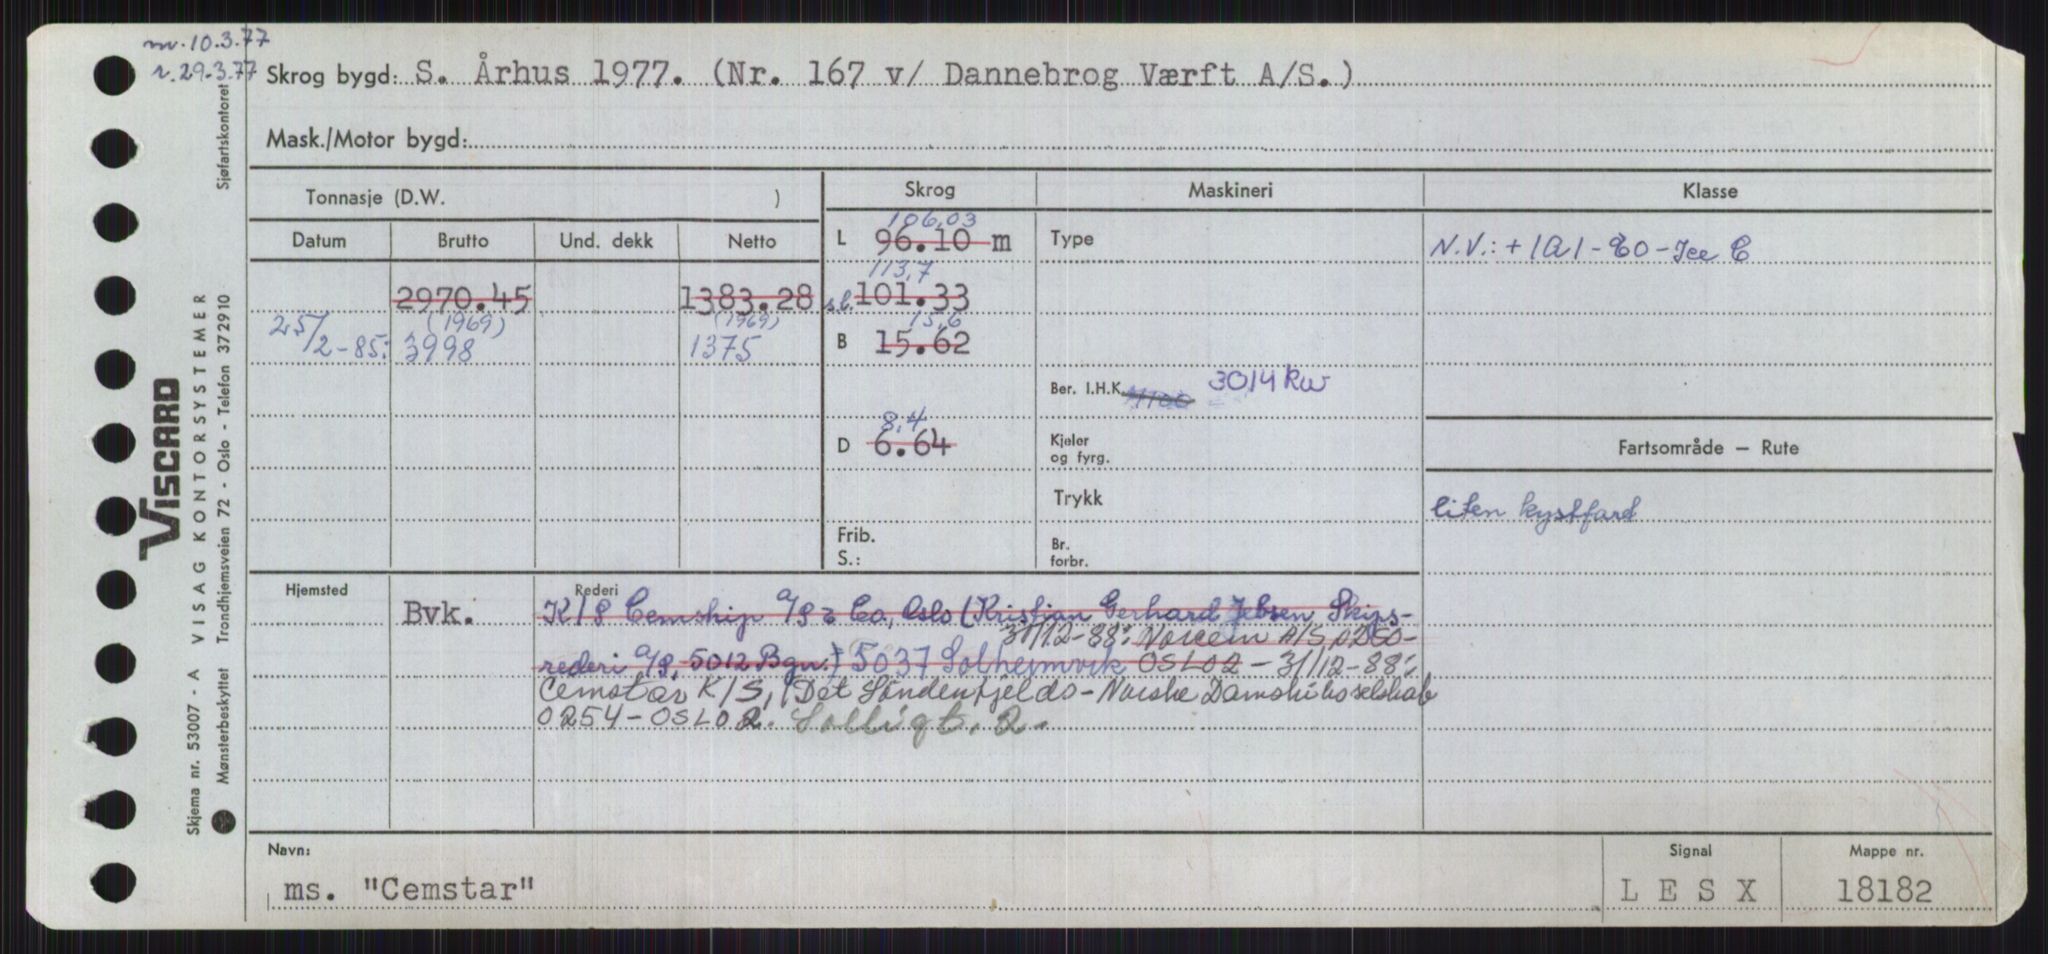 m. 10.3.77
r. 29.3.77
Skrog bygd: S. Århus 1977. (Nr. 167 v/ Dannebrog Værft A/S.)
Mask./Motor bygd:
Tonnasje (D.W. )
Skrog
Maskineri
Klasse
Datum Brutto Und. dekk Netto
106,03
L 96.10 m
Type
N.V.: + 1A1 - E0 - Ice C
113,7
2970.45 1383.28
s.l. 101.33
25/2-85: (1969) (1969)
3998 1375
15,6
B 15.62
Ber. I.H.K. 4100 3014 kw
8,4
D 6.64
Kjeler
og fyrg.
Fartsområde – Rute
Trykk
liten kystfart
Frib.
S.:
Br.
forbr.
Hjemsted
Rederi
Bvk.
K/S Cemship A/S & Co., Oslo (Kristian Gerhard Jebsen Skips-
31/12-88: Norcem A/S, 0250-
rederi A/S, 5012 Bgn.) 5037 Solheimvik OSLO 2 - 31/12-88:
Cemstar K/S, (Det Söndenfjelds-Norske Dampskibsselskab
0254-OSLO 2. Solligt. 2.
Navn:
ms. "Cemstar"
Signal
L E S X
Mappe nr.
18182
VISCARD
Skjema nr. 53007 - A VISAG KONTORSYSTEMER
Mønsterbeskyttet Trondhjemsveien 72 - Oslo - Telefon 372910
Sjøfartskontoret